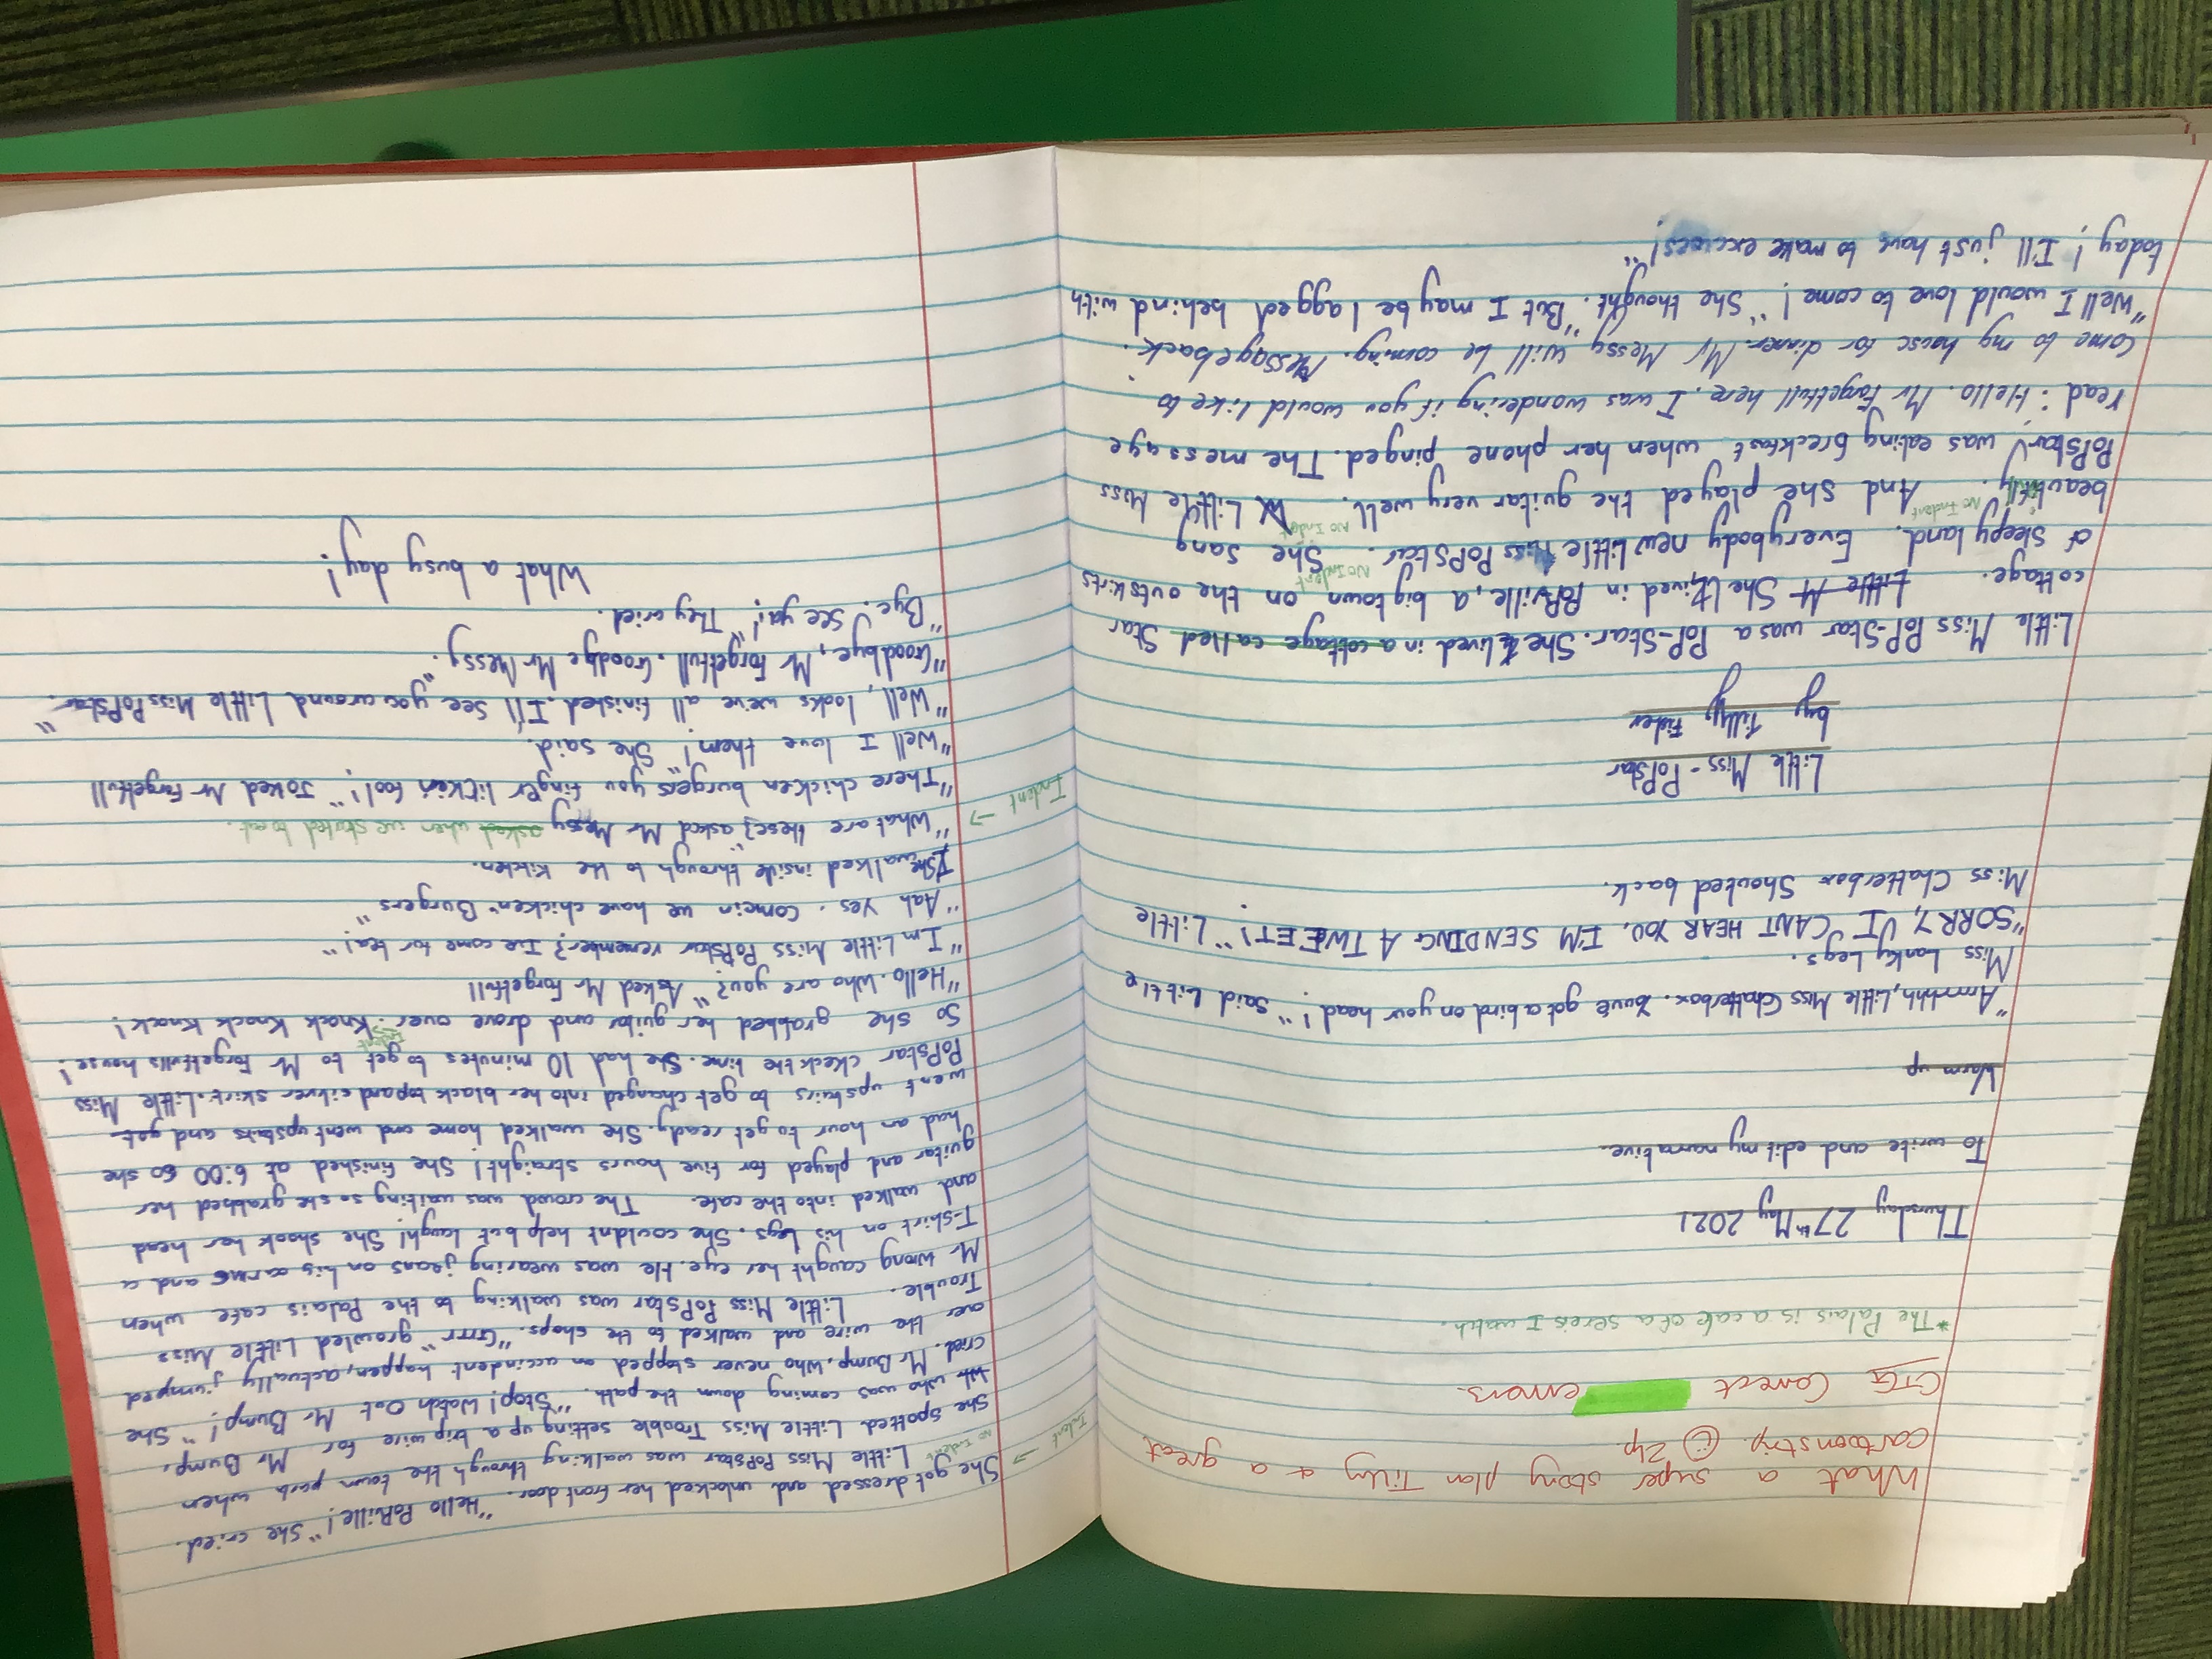 What a super story plan Tilly & a great
cartoon strip. ☺ 2hp
CTG Correct errors.
*The Palais is a cafe of a sereis I watch.
Thursday 27th May 2021
To write and edit my narrative.
Warm up
"Arrrhhh, Little Miss Chatterbox. Youve got a bird on your head!" Said Little
Miss Lanky Legs.
"SORRY, I CANT HEAR YOU, I'M SENDING A TWEET!" Little
Miss Chatterbox Shouted back.
Little Miss-PoPstar
by Tilly Fisher
Little Miss PoP-Star was a PoP-Star. She lived in a cottage called Star
cottage. Little M She lived in PoPville, a big town on the outskirts
No Indent
of Sleepyland. Everybody new Little Miss PoPStar. She sang
No Indent No Indent
beautifully. And She played the guitar very well. Little Miss
PoPStar was eating breckfast when her phone pinged. The message
read: Hello. Mr Forgetfull here. I was wondering if you would like to
come to my house for dinner. Mr Messy will be coming. Message back.
"Well I would love to come!" She thought. "But I may be lagged behind with
today! I'll just have to make excuses!"
She got dressed and unlocked her front door. "Hello PoPville!" She cried.
Indent → No Indent
Little Miss PoPstar was walking through the town park when
She spotted Little Miss Trouble setting up a trip wire for Mr Bump,
Wh who was coming down the path. "Stop! Watch Out Mr Bump!" She
cried. Mr Bump, who never stopped an accindent happen, actually jumped
over the wire and walked to the shops. "Grrr" growled Little Miss
Trouble. Little Miss PoPstar was walking to the Palais cafe when
Mr Wrong caught her eye. He was wearing jeans on his arms and a
T-shirt on his legs. She couldnt help but laugh! She shook her head
and walked into the cafe. The crowd was waiting so she grabbed her
guitar and played for five hours straight! She finished at 6:00 so she
had an hour to get ready. She walked home and went upstairs and got
went upstairs to get changed into her black top and silver skirt. Little Miss
PoPstar check the time. She had 10 minutes to get to Mr Forgetfulls house!
Indent
So she grabbed her guitar and drove over. Knock Knock Knock!
"Hello. Who are you?" Asked Mr Forgetfull
"I'm Little Miss PoPstar remember? I've come for tea!"
"Aah Yes. Come in we have chicken Burgers"
She walked inside through to the kitchen.
"What are these?" asked Mr Messy asked when we started to eat.
Indent →
"There chicken burgers you finger lickin fool!" Joked Mr Forgetfull
"Well I love them! She said.
"Well, looks we've all finished. I'll see you around Little Miss PoPstar"
"Goodbye, Mr Forgetfull. Goodbye Mr Messy."
"Bye! See ya!" They cried.
What a busy day!